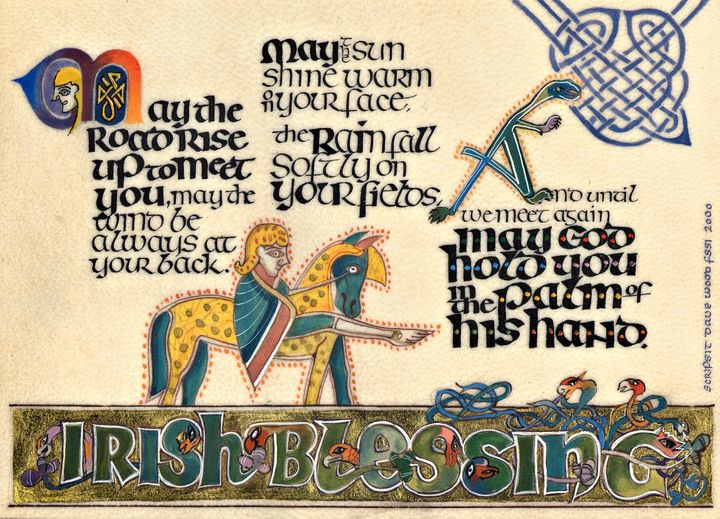 May the
Road rise
up to meet
you, may the
wind be
always at
your back.
May the sun
shine warm
on your face.
the Rain fall
softly on
your fields,
And until
we meet again
may God
hold you
in the palm of
his hand.
Irish Blessing
Scripsit Dave Wood FSSI 2000